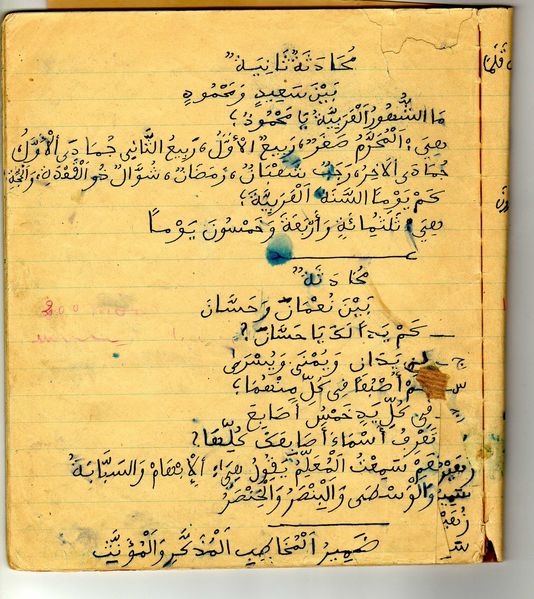 مُحَادَثَةٌ ثَانِيَةٌ
بَيْنَ سَعِيدٍ وَمَحْمُودٍ
مَا الشُّهُورُ الْعَرَبِيَّةُ يَا مَحْمُودُ؟
هِيَ: الْمُحَرَّمُ صَفَرٌ، رَبِيعٌ الأَوَّلُ، رَبِيعُ الثَّانِي جُمَادَى الْأَوَّلُ
جُمَادَى الآخِرُ، رَجَبُ شَعْبَانُ، رَمَضَانُ، شَوَّالٌ ذُو الْقَعْدَةِ، وَالْحِجَّة
كَمْ يَوْمًا السَّنَةُ الْعَرَبِيَّةُ؟
هِيَ ثَلَثُمِائَةٍ وَأَرْبَعَةٌ وَخَمْسُونَ يَوْمًا
مُحَادَثَةٌ
بَيْنَ نُعْمَانَ وَحَسَّانَ
ــ كَمْ يَدٍ لَكَ يَا حَسَّانُ؟
ج ــ لِي يَدَانِ وَيُمْنَى وَيُسْرَى
س ــ كَمْ أَصْبُعًا فِي كُلِّ مِنْهُمَا؟
فِي كُلِّ يَدٍ خَمْسُ أَصَابِعَ
تَعْرِفُ أَسْمَاءَ أَصَابِعِكَ كُلِّهَا؟
نَعَمْ سَمِعْتُ الْمُعَلِّمَ يَقُولُ هِيَ: الْإِبْهَامُ وَالسَّبَّابَةُ
وَالْوُسْطَى وَالْبِنْصَرُ وَالْخِنْصَرُ
ضَمِيرُ الْمُخَاطَبِ الْمُذَكَّرِ وَالْمُؤَنَّثِ